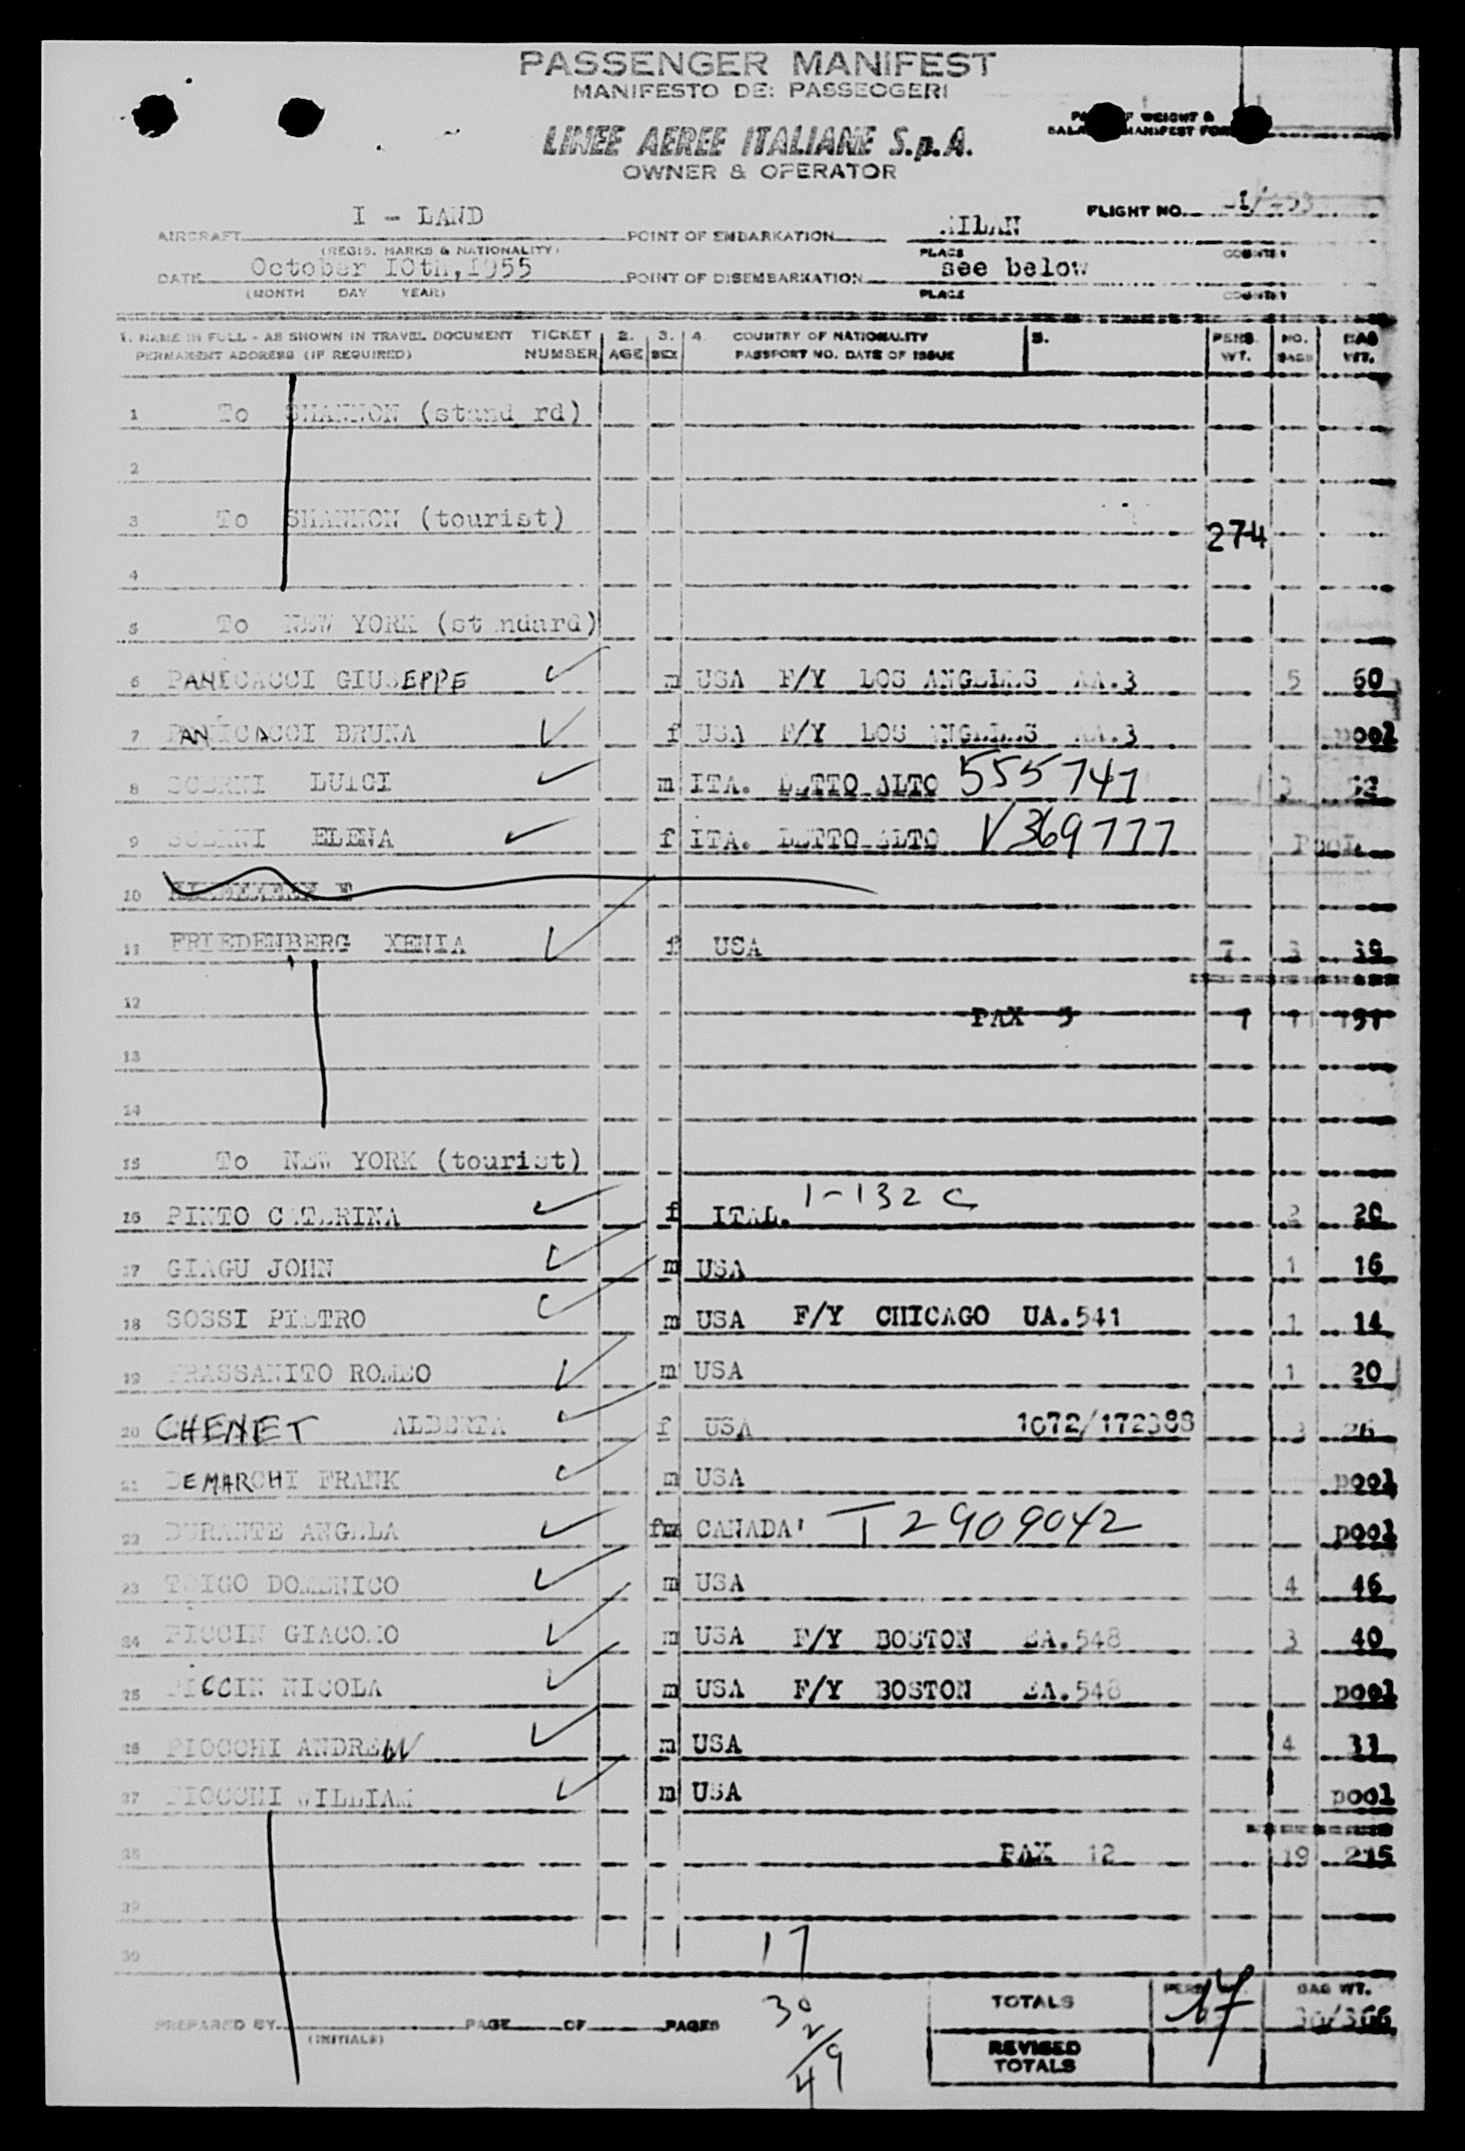 PASSENGER MANIFEST
MANIFESTO DEI PASSEGGERI
LINEE AEREE ITALIANE S.p.A.
OWNER & OPERATOR
WEIGHT &
MANIFEST
FLIGHT NO.
AIRCRAFT I - LAND POINT OF EMBARKATION MILAN
(REGIS. MARKS & NATIONALITY) PLACE COUNTRY
DATE October 10th,1955 POINT OF DISEMBARKATION see below
(MONTH DAY YEAR) PLACE COUNTRY
1. NAME IN FULL - AS SHOWN IN TRAVEL DOCUMENT TICKET 2. 3. 4. COUNTRY OF NATIONALITY 5. PERS. NO. BAG
PERMANENT ADDRESS (IF REQUIRED) NUMBER AGE SEX PASSPORT NO. DATE OF ISSUE WT. BAGS WT.
1 To SHANNON (stand rd)
2
3 To SHANNON (tourist)
274
4
5 To NEW YORK (st ndard)
6 PANICACCI GIUSEPPE m USA F/Y LOS ANGELES AA.3 5 60
7 PANICACCI BRUNA f USA F/Y LOS ANGELES AA.3 pool
8 LUIGI m ITA. LETTO ALTO 555747
9 ELENA f ITA. LETTO ALTO V369777 Pool
10
11 FRIEDENBERG XENIA f USA 7 3 39
12 PAX 5 7
13
14
15 To NEW YORK (tourist)
16 PINTO CATERINA f ITAL. 1-132 C 2 20
17 GIAGU JOHN m USA 1 16
18 SOSSI PIETRO m USA F/Y CHICAGO UA.541 1 14
19 FRASSANITO ROMEO m USA 1 20
20 CHENET ALBERTA f USA 1072/172388 3 26
21 DEMARCHI FRANK m USA pool
22 DURANTE ANGELA CANADA' T 2909042 pool
23 TOIGO DOMENICO m USA 4 46
24 PICCIN GIACOMO m USA F/Y BOSTON EA.548 3 40
25 PICCIN NICOLA m USA F/Y BOSTON EA.548 pool
26 PIOCCHI ANDREW m USA 4 33
27 PIOCCHI WILLIAM m USA pool
28 PAX 12 19 215
29
30
17
30
2
49
TOTALS PERS. 17 BAG WT. 30/366
PREPARED BY (INITIALS) PAGE OF PAGES
REVISED TOTALS